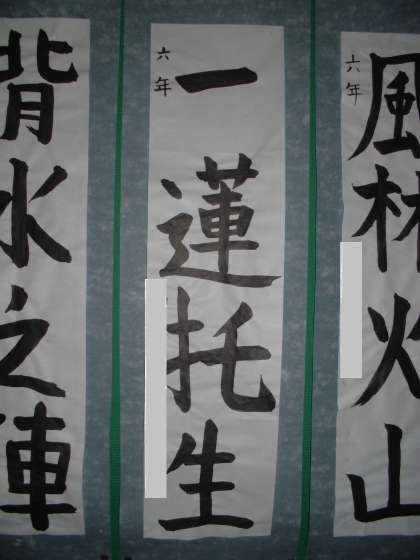 風林火山
六年
一蓮托生
六年
背水之陣